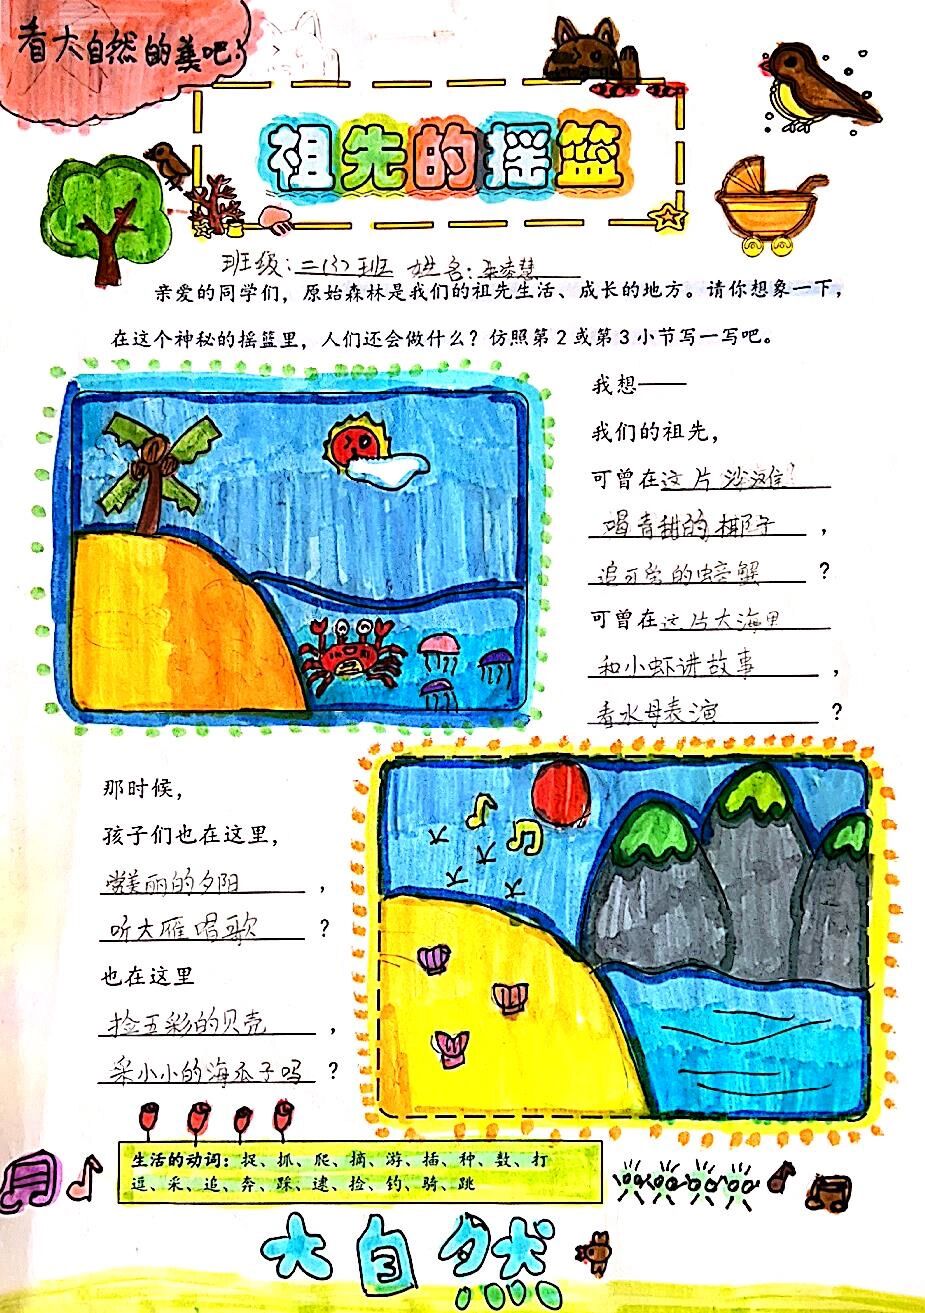 看大自然的美吧！
祖先的摇篮
班级：二(3)班 姓名：
亲爱的同学们，原始森林是我们的祖先生活、成长的地方。请你想象一下，
在这个神秘的摇篮里，人们还会做什么？仿照第2或第3小节写一写吧。
我想——
我们的祖先，
可曾在这片沙滩
喝青甜的椰子，
追可爱的螃蟹？
可曾在这片大海里
和小虾讲故事，
看水母表演？
那时候，
孩子们也在这里，
赏美丽的夕阳，
听大雁唱歌？
也在这里
捡五彩的贝壳，
采小小的海瓜子吗？
生活的动词：捉、抓、爬、摘、游、插、种、数、打
逗、采、追、奔、踩、逮、捡、钓、骑、跳
大自然